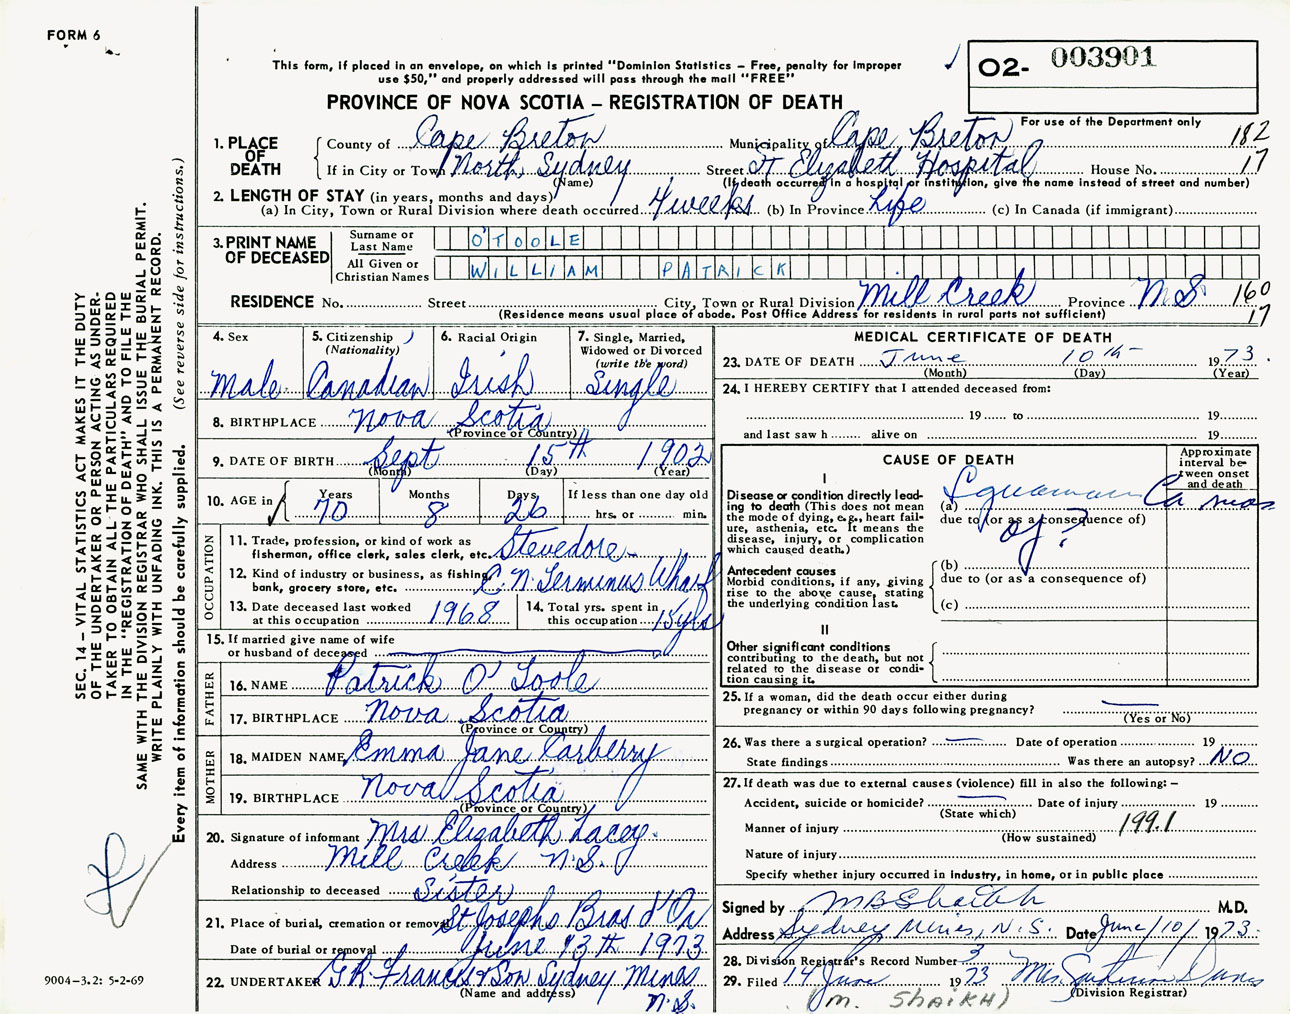 FORM 6
This form, if placed in an envelope, on which is printed "Dominion Statistics – Free, penalty for improper
use $50," and properly addressed will pass through the mail "FREE"
PROVINCE OF NOVA SCOTIA – REGISTRATION OF DEATH
O2- 003901
For use of the Department only
1. PLACE OF DEATH
County of Cape Breton Municipality of Cape Breton 182
If in City or Town North Sydney Street St Elizabeth Hospital House No. 17
(Name) (If death occurred in a hospital or institution, give the name instead of street and number)
2. LENGTH OF STAY (in years, months and days)
(a) In City, Town or Rural Division where death occurred 4 weeks (b) In Province Life (c) In Canada (if immigrant)
3. PRINT NAME OF DECEASED
Surname or Last Name O'TOOLE
All Given or Christian Names WILLIAM PATRICK
RESIDENCE No. Street City, Town or Rural Division Mill Creek Province N.S. 160
(Residence means usual place of abode. Post Office Address for residents in rural parts not sufficient) 17
4. Sex
Male
5. Citizenship
(Nationality)
Canadian
6. Racial Origin
Irish
7. Single, Married,
Widowed or Divorced
(write the word)
Single
8. BIRTHPLACE Nova Scotia
(Province or Country)
9. DATE OF BIRTH Sept 15th 1902
(Month) (Day) (Year)
10. AGE in
Years Months Days If less than one day old
70 8 26 hrs. or min.
OCCUPATION
11. Trade, profession, or kind of work as
fisherman, office clerk, sales clerk, etc. Stevedore
12. Kind of industry or business, as fishing,
bank, grocery store, etc. C.N. Terminus Wharf
13. Date deceased last worked
at this occupation 1968
14. Total yrs. spent in
this occupation 15 yrs
15. If married give name of wife
or husband of deceased
FATHER
16. NAME Patrick O'Toole
17. BIRTHPLACE Nova Scotia
(Province or Country)
MOTHER
18. MAIDEN NAME Emma Jane Carberry
19. BIRTHPLACE Nova Scotia
(Province or Country)
20. Signature of informant Mrs Elizabeth Lacey
Address Mill Creek N.S.
Relationship to deceased Sister
21. Place of burial, cremation or removal St Josephs Bras d'Or
Date of burial or removal June 13th 1973
22. UNDERTAKER G.R. Francis & Son Sydney Mines
(Name and address) N.S.
MEDICAL CERTIFICATE OF DEATH
23. DATE OF DEATH June 10th 1973.
(Month) (Day) (Year)
24. I HEREBY CERTIFY that I attended deceased from:
19 to 19
and last saw h alive on 19
CAUSE OF DEATH
Approximate
interval be-
tween onset
and death
I
Disease or condition directly lead-
ing to death (This does not
mean the mode of dying, e.g., heart fail-
ure, asthenia, etc. It means the
disease, injury, or complication
which caused death.)
(a) Squamous Ca
due to (or as a consequence of)
of ?
Antecedent causes
Morbid conditions, if any, giving
rise to the above cause, stating
the underlying condition last.
(b)
due to (or as a consequence of)
(c)
II
Other significant conditions
contributing to the death, but not
related to the disease or condi-
tion causing it.
25. If a woman, did the death occur either during
pregnancy or within 90 days following pregnancy?
(Yes or No)
26. Was there a surgical operation? Date of operation 19
State findings Was there an autopsy? NO
27. If death was due to external causes (violence) fill in also the following: –
Accident, suicide or homicide? Date of injury 19
(State which)
Manner of injury 199.1
(How sustained)
Nature of injury
Specify whether injury occurred in industry, in home, or in public place
Signed by M B Shaikh M.D.
Address Sydney Mines, N.S. Date June/10/ 1973.
28. Division Registrar's Record Number 3
29. Filed 14 June 1973 Mrs.
(Division Registrar)
(M. SHAIKH)
SEC. 14 – VITAL STATISTICS ACT MAKES IT THE DUTY
OF THE UNDERTAKER OR PERSON ACTING AS UNDER-
TAKER TO OBTAIN ALL THE PARTICULARS REQUIRED
IN THE "REGISTRATION OF DEATH" AND TO FILE THE
SAME WITH THE DIVISION REGISTRAR WHO SHALL ISSUE THE BURIAL PERMIT.
WRITE PLAINLY WITH UNFADING INK. THIS IS A PERMANENT RECORD.
Every item of information should be carefully supplied. (See reverse side for instructions.)
9004-3.2: 5-2-69